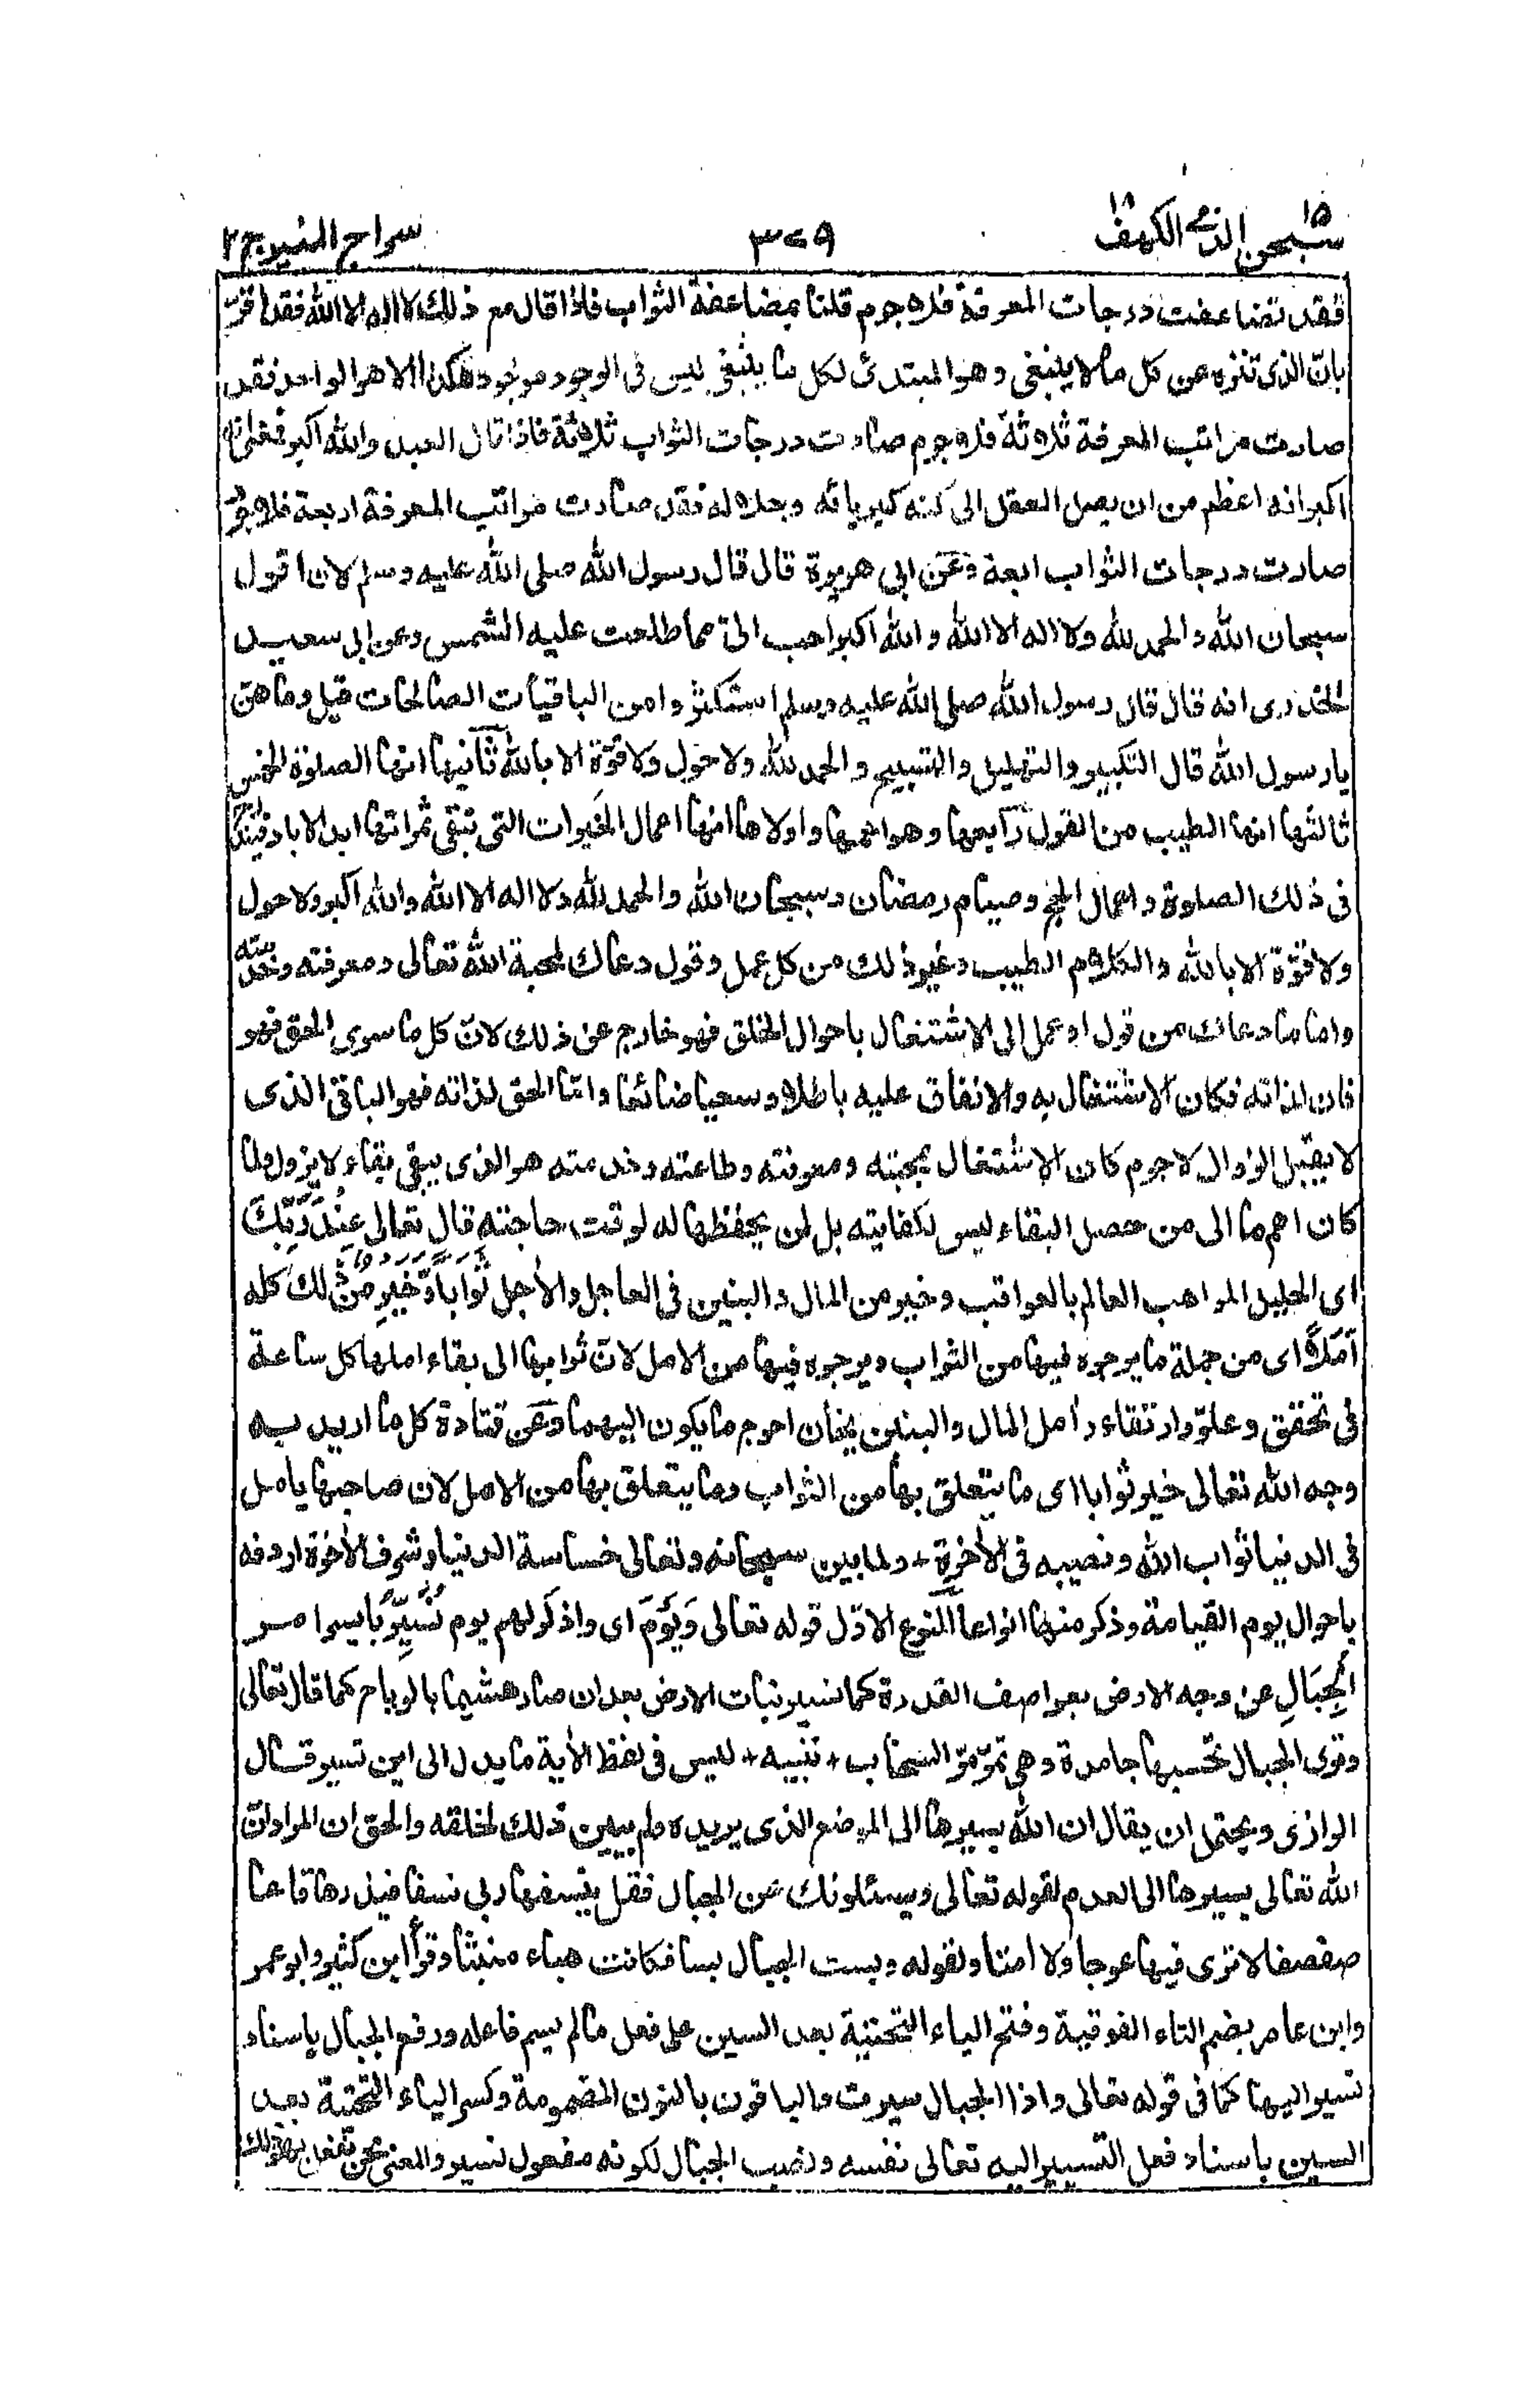 ١٥ ١٨
سبحن الذى الكهف ٣٧٩ سراج المنير ج ٢
فقد تضاعفت درجات المعرفة فلا جرم قلنا بمضاعفة الثواب فاذا قال مع ذلك لا اله الا الله فقد اقرّ
بانّ الذى تنزه عن كل ما لا ينبغى وهو المبتدئ لكل ما ينبغى ليس فى الوجود موجود هكذا الا هو الواحد فقد
صارت مراتب المعرفة ثلاثة فلا جرم صارت درجات الثواب ثلاثة فاذا قال العبد والله اكبر فمعنى انه
اكبر انه اعظم من ان يصل العقل الى كنه كبريائه وجلاله فقد صارت مراتب المعرفة اربعة فلا جرم
صارت درجات الثواب اربعة وعن ابى هريرة قال قال رسول الله صلى الله عليه وسلم لان اقول
سبحان الله والحمد لله ولا اله الا الله والله اكبر احب الىّ مما طلعت عليه الشمس وعن ابى سعيد
الخدرى انه قال قال رسول الله صلى الله عليه وسلم استكثروا من الباقيات الصالحات قيل وما هنّ
يا رسول الله قال التكبير والتهليل والتسبيح والحمد لله ولا حول ولا قوّة الا بالله ثانيها انها الصلوة الخمس
ثالثها انها الطيب من القول رابعها وهو اعمها واولاها انها اعمال الخيرات التى تبقى ثمراتها ابد الاباد فيندرج
فى ذلك الصلوة واعمال الحج وصيام رمضان وسبحان الله والحمد لله ولا اله الا الله والله اكبر ولا حول
ولا قوّة الا بالله والكلام الطيب وغير ذلك من كل عمل وقول دعاك لمحبة الله تعالى ومعرفته وخدمته
واما ما دعاك من قول او عمل الى الاشتغال باحوال الخلق فهو خارج عن ذلك لانّ كل ما سوى الحق فهو
فان لذاته فكان الاشتغال به والانفاق عليه باطلا وسعيا ضائعا وامّا الحق لذاته فهو الباقى الذى
لا يقبل الزوال لا جرم كان الاشتغال بمحبته ومعرفته وطاعته وخدمته هو الذى يبقى بقاء لا يزول ولما
كان اهم ما الى من حصل البقاء ليس لكفايته بل لمن يحفظها له لوقت حاجته قال تعالى عِنْدَ رَبِّكَ
اى الجليل المواهب العالم بالعواقب وخير من المال والبنين فى العاجل والآجل ثَوَابًا وَّخَيْرٌ من ذلك كله
اَمَلًا اى من جملة ما يرجوه فيها من الثواب ويرجوه فيها من الامل لانّ ثوابها الى بقاء املها كل ساعة
فى تحقق وعلوّ وارتقاء وأمل المال والبنين يخان احوج ما يكون اليهما وعن قتادة كل ما اريد به
وجه الله تعالى خير ثوابا اى ما يتعلق بها من الثواب وما يتعلق بها من الامل لان صاحبها يامل
فى الدنيا ثواب الله ونصيبه فى الآخرة + ولما بين سبحانه وتعالى خساسة الدنيا وشرف الآخرة اردفه
باحوال يوم القيامة وذكر منها انواعا النوع الاوّل قوله تعالى وَيَوْمَ اى واذكر لهم يوم نُسَيِّرُ بايسر امر
الْجِبَالَ عن وجه الارض بعواصف القدرة كما نسير نبات الارض بعد ان صار هشيما بالرياح كما قال تعالى
وترى الجبال تحسبها جامدة وهى تمرّ مرّ السحاب + تنبيه + ليس فى لفظ الآية ما يدل الى اين تسير قال
الرازى ويحتمل ان يقال ان الله يسيرها الى الموضع الذى يريده ولم يبين ذلك لخلقه والحق ان المراد انّ
الله تعالى يسيرها الى العدم لقوله تعالى ويسئلونك عن الجبال فقل ينسفها ربى نسفا فيذرها قاعا
صفصفا لا ترى فيها عوجا ولا امتا ولقوله وبست الجبال بسا فكانت هباء منبثا وقرأ ابن كثير وابو عمر
وابن عامر بضم التاء الفوقية وفتح الياء التحتية بعد السين على فعل ما لم يسم فاعله ورفع الجبال باسناد
تسير اليها كما فى قوله تعالى واذا الجبال سيرت والباقون بالنون المضمومة وكسر الياء التحتة بعد
السين باسناد فعل التسيير اليه تعالى نفسه ونصب الجبال لكونه مفعول نسير والمعنى نحن نفعل بها ذلك